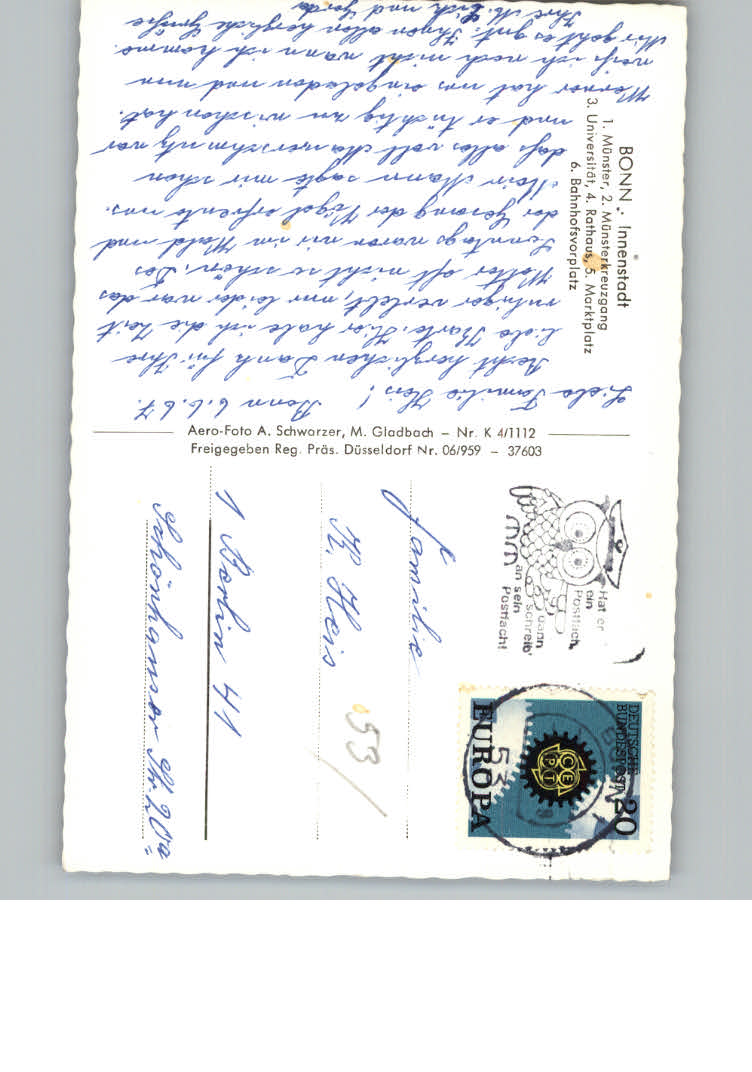 BONN · Innenstadt
1. Münster, 2. Münsterkreuzgang
3. Universität, 4. Rathaus, 5. Marktplatz
6. Bahnhofsvorplatz
Liebe Familie Heis! Bonn 6.6.67.
Recht herzlichen Dank für Ihre
liebe Karte. Hier habe ich die Zeit
ruhiger verlebt, nur leider war das
Wetter oft nicht so schön. Des
Sonntags waren wir im Wald und
der Gesang der Vögel erfreute uns.
Mein Mann sagte mir schon
daß alles voll Mauerschmutz war
und er tüchtig zu wischen hat.
Werner hat uns eingeladen und nun
weiß ich noch nicht wann ich komme.
Mir geht es gut. Ihnen allen herzliche Grüße
Ihre M. und Gerda
Aero-Foto A. Schwarzer, M. Gladbach – Nr. K 4/1112
Freigegeben Reg. Präs. Düsseldorf Nr. 06/959 – 37603
Hat er
ein
Postfach,
dann
schreib'
an sein
Postfach!
DEUTSCHE
BUNDESPOST
20
CEPT
EUROPA
53
BONN
Familie
K. Heis
53/
1 Berlin 41
Schönhauser Str. 20a